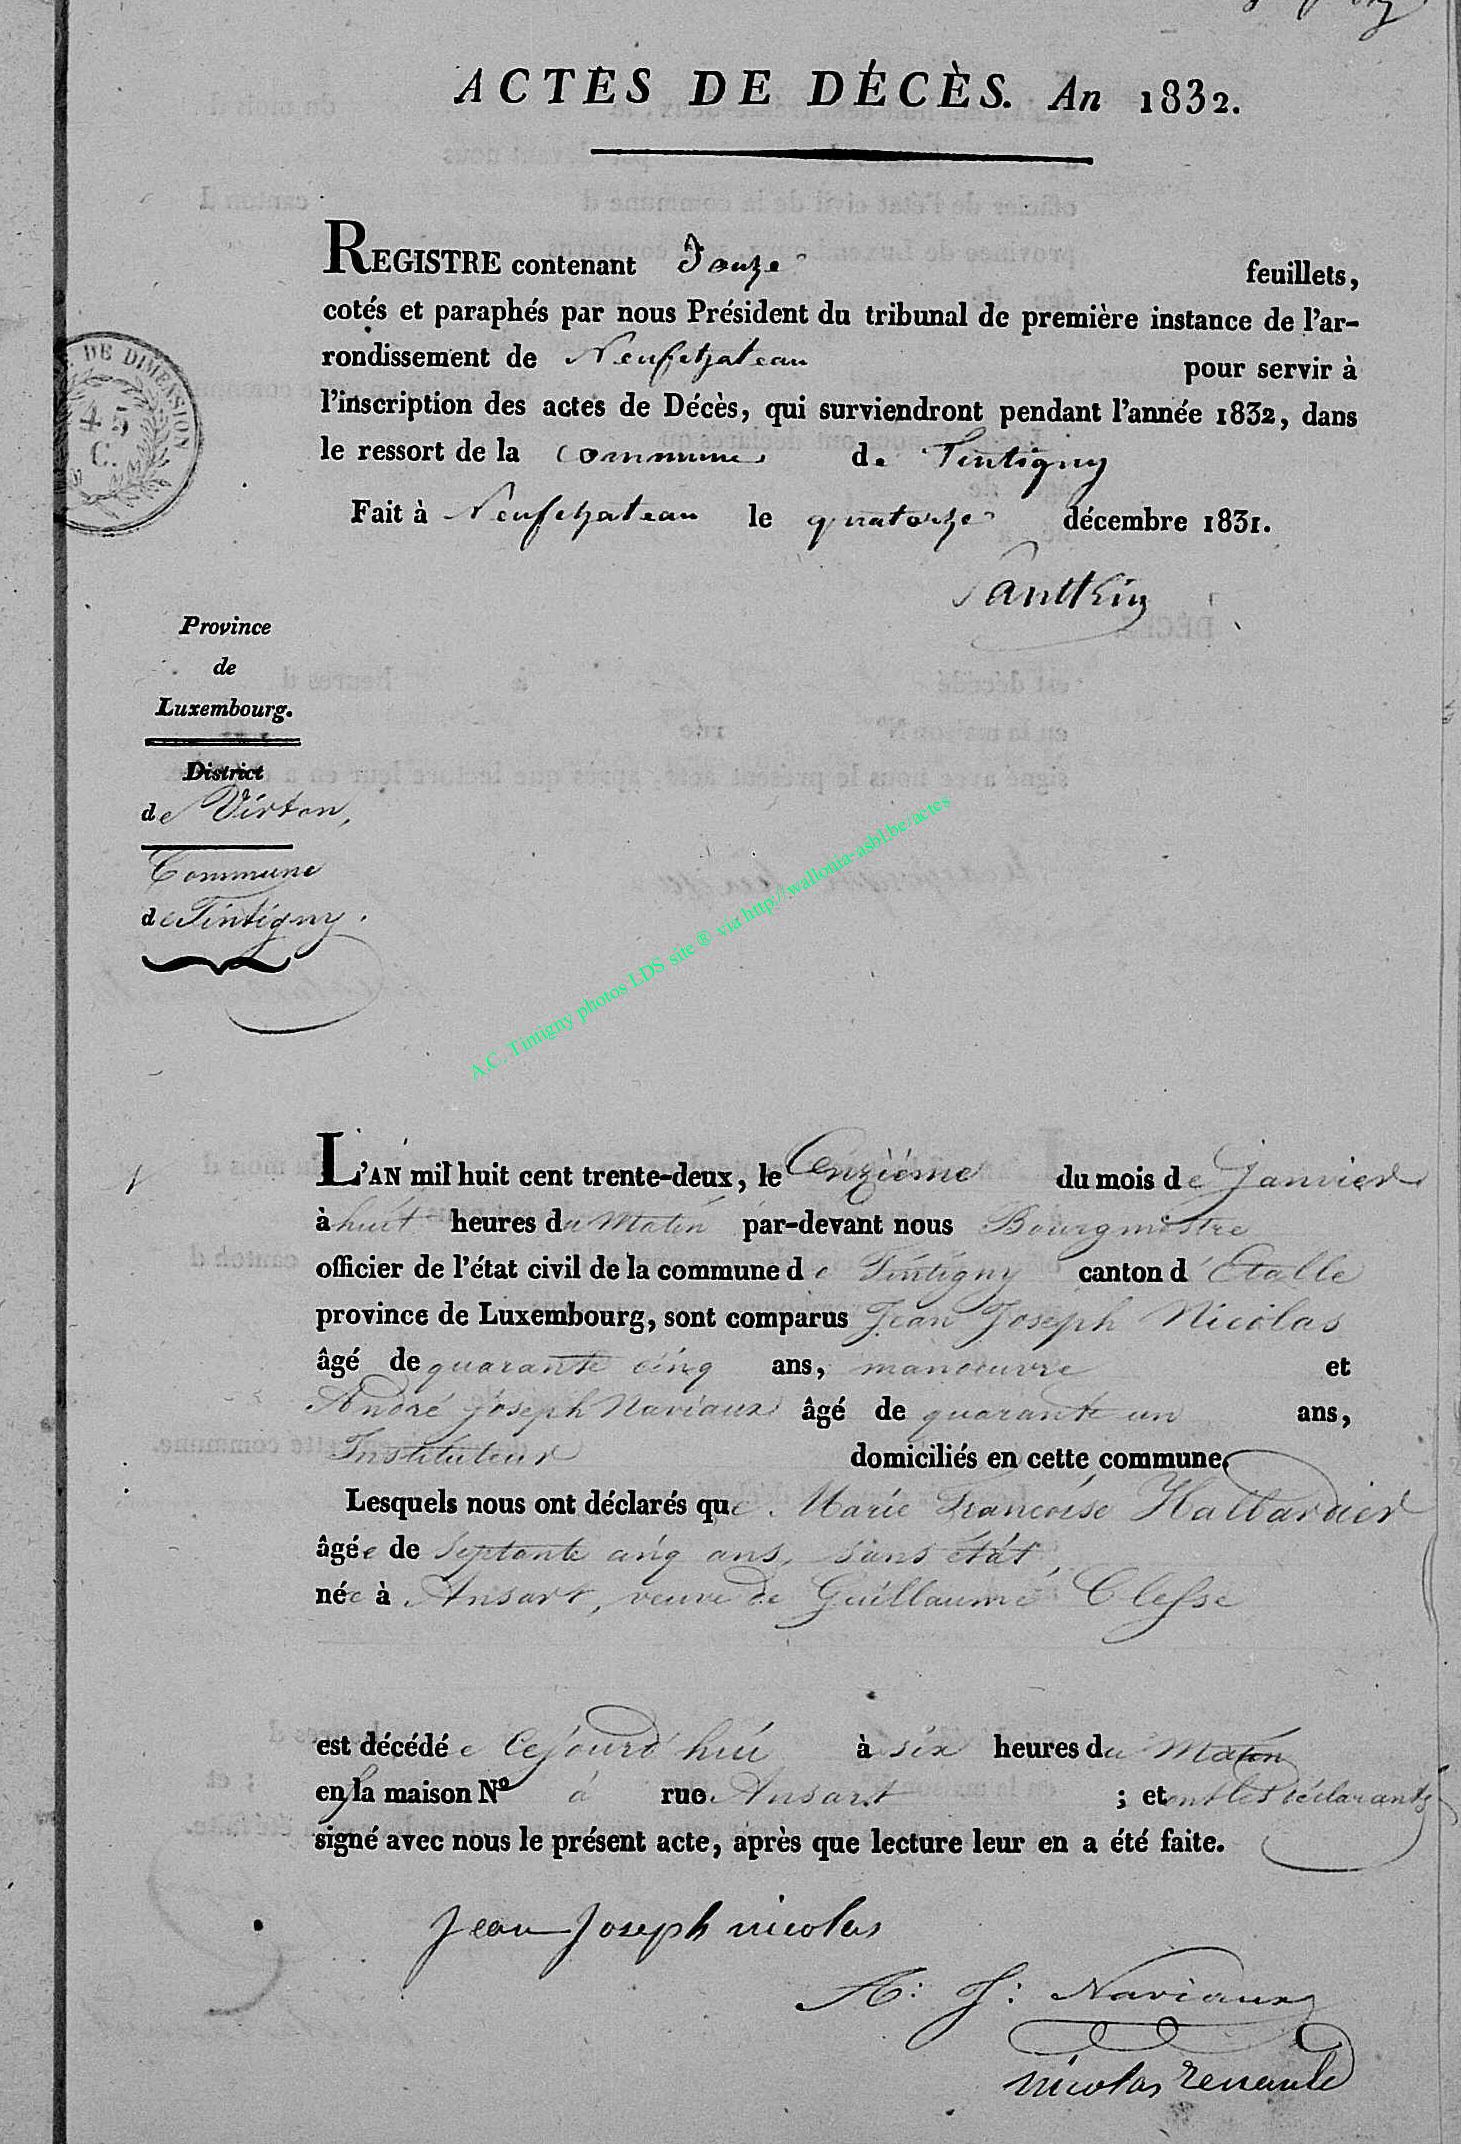 ACTES DE DÉCÈS. An 1832.
REGISTRE contenant Douze feuillets,
cotés et paraphés par nous Président du tribunal de première instance de l'ar-
rondissement de Neufchateau pour servir à
l'inscription des actes de Décès, qui surviendront pendant l'année 1832, dans
le ressort de la commune de Tintigny
Fait à Neufchateau le quatorze décembre 1831.
DE DIMENSION
45
C.
Province
de
Luxembourg.
District
de Virton,
Commune
de Tintigny.
A.C. Tintigny photos LDS site ® via http://wallonia-asbl.be/actes
1
L'AN mil huit cent trente-deux, le Onzième du mois de Janvier
à huit heures du Matin par-devant nous Bourgmestre
officier de l'état civil de la commune de Tintigny canton d'Etalle
province de Luxembourg, sont comparus Jean Joseph Nicolas
âgé de quarante cinq ans, manoeuvre et
André Joseph Naviaux âgé de quarante un ans,
Instituteur domiciliés en cette commune.
Lesquels nous ont déclarés que Marie Francoise Hallardier
âgée de Septante cinq ans, sans état,
née à Ansart, veuve de Guillaume Clesse
est décédée Cejourd'hui à six heures du Matin
en sa maison Nº à rue Ansart ; et ont les déclarants
signé avec nous le présent acte, après que lecture leur en a été faite.
Jean Joseph nicolas
A: J: Naviaux
nicolas renauld